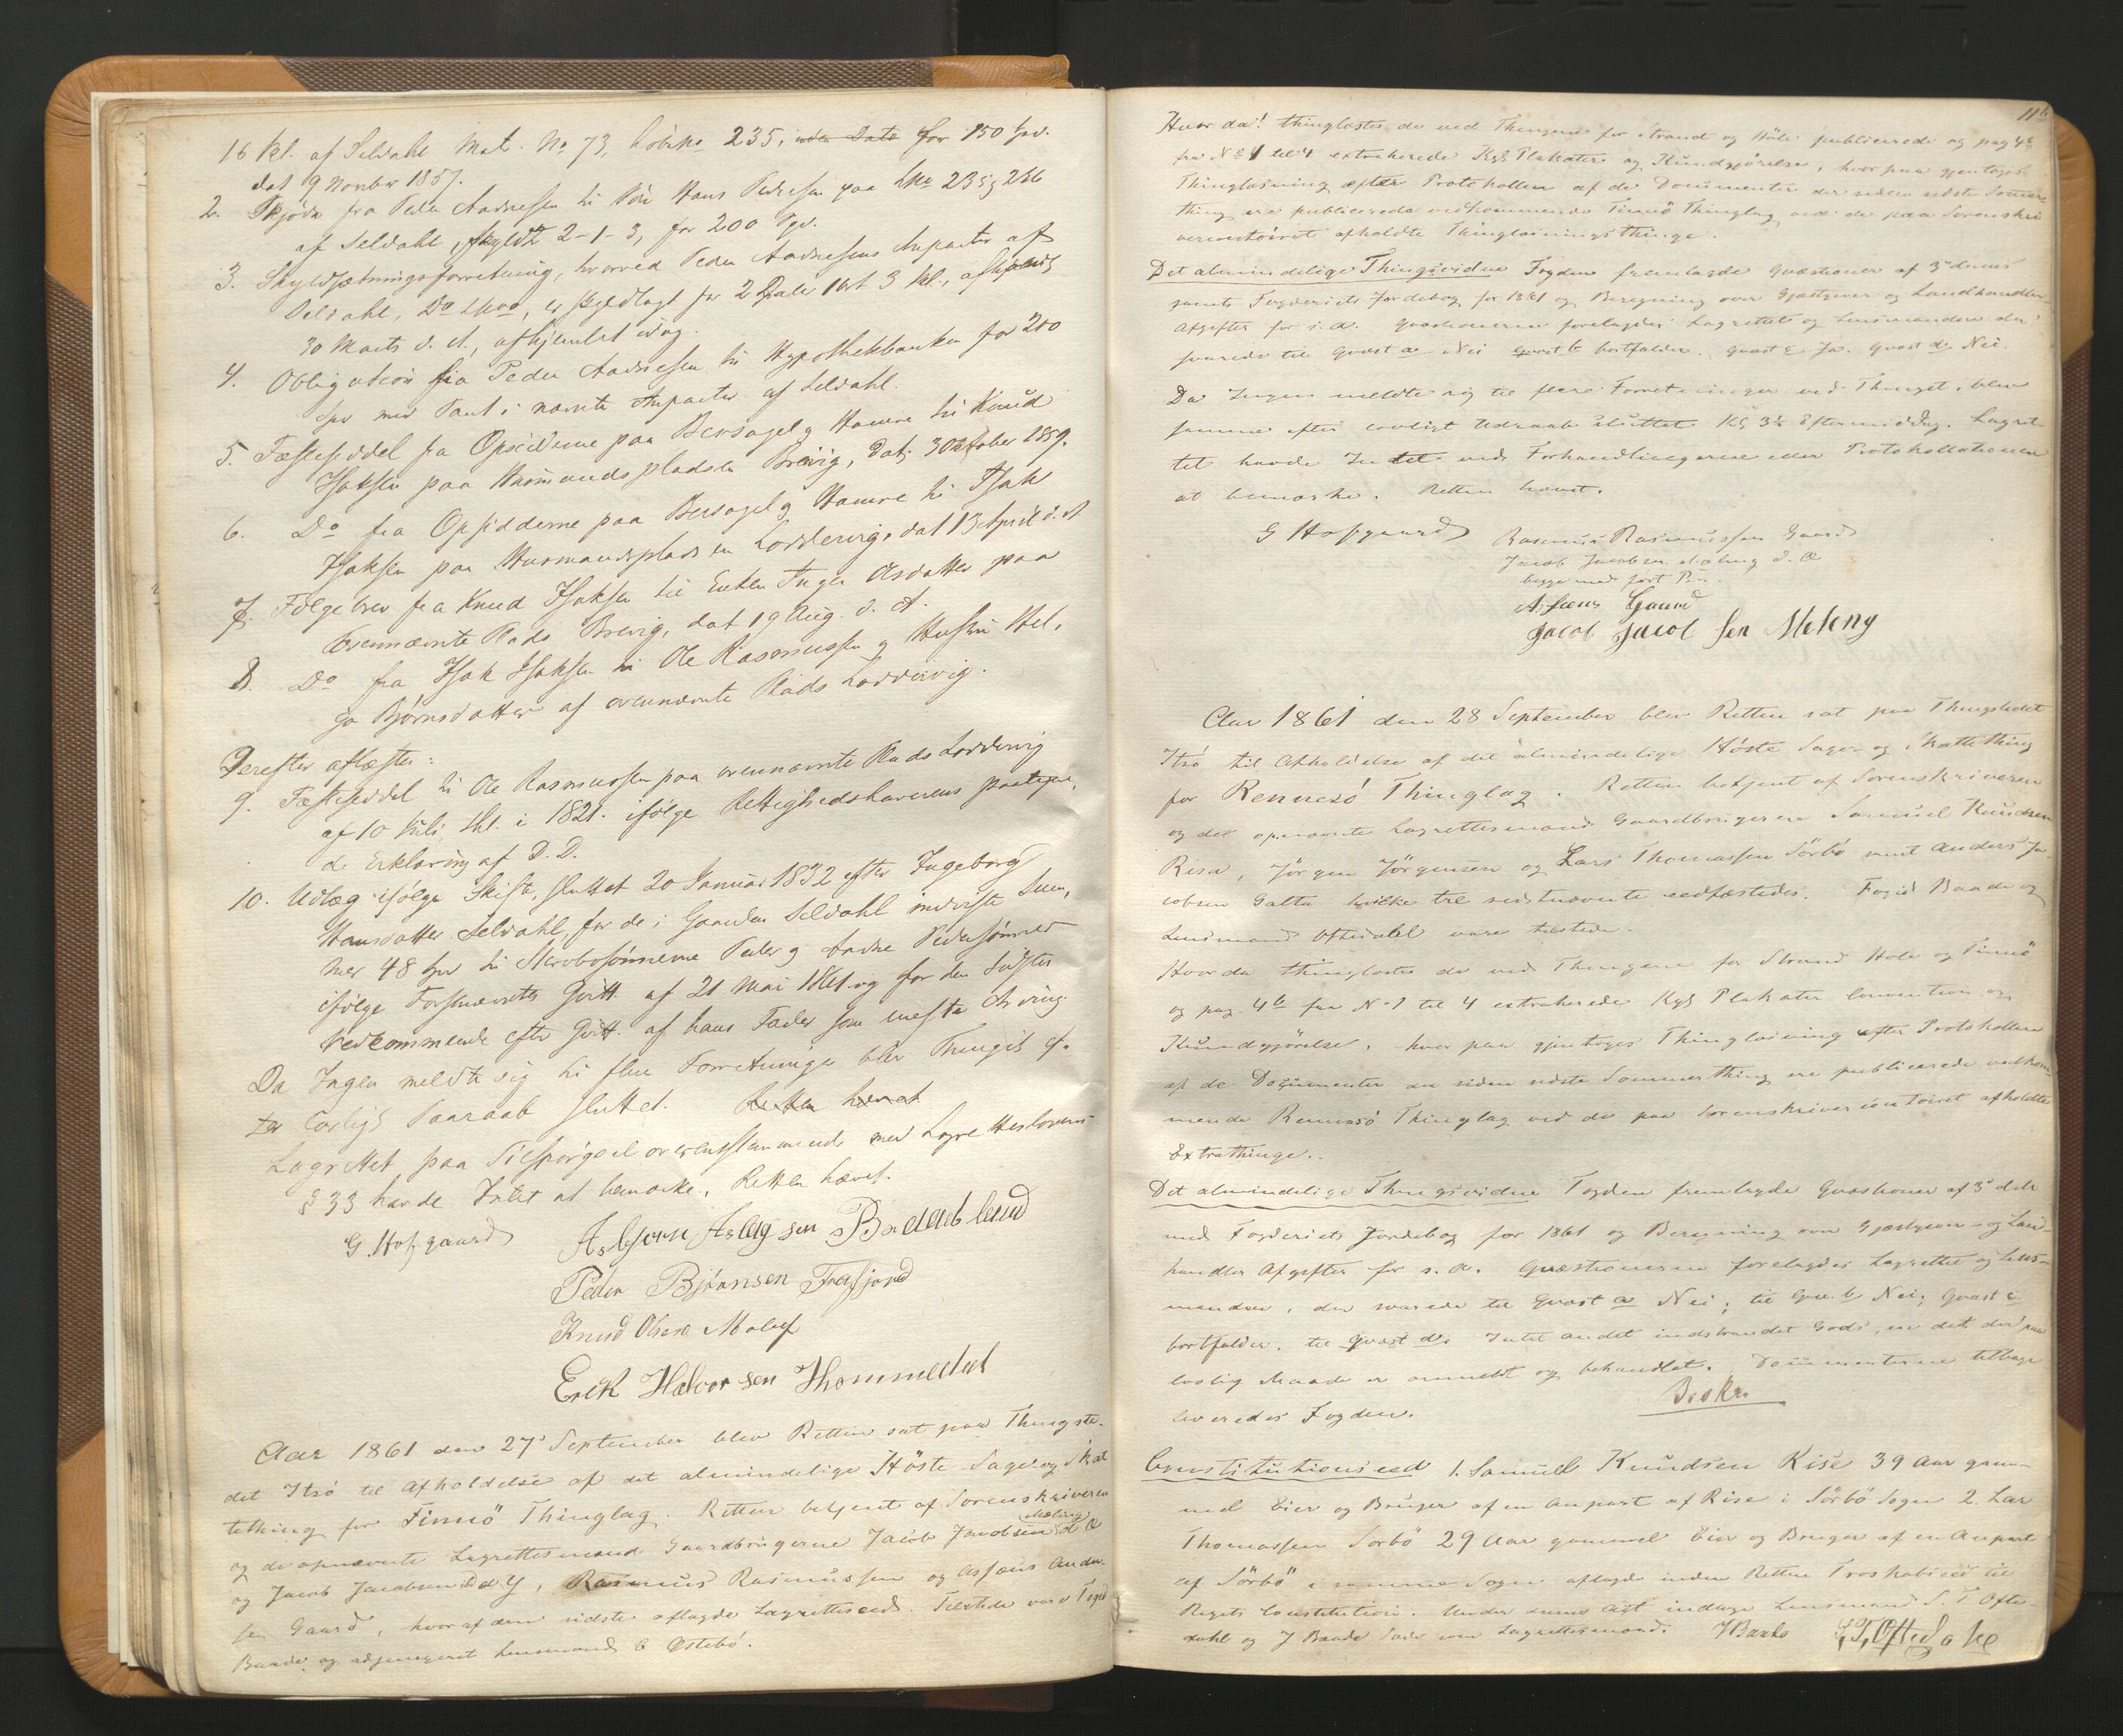 16 Skl. af Seldahl Matr. No 73, Løbeno 235, uden Dato for 150 Spd.
dat 9 Novbr 1857.
2. Skjøde fra Peder Aadnesen til Søn Hans Pedersen paa Lno 235 og 236
af Seldahl, skyldsat 2-1-3, for 200 Spd.
3. Skyldsætningsforretning, hvorved Peder Aadnesens Anparter af
Seldahl, Do Lnoo, er skyldlagt for 2 Daler 1 Ort 3 Skl., afhjemlet
30 Marts d. A., afhjemlet idag.
4. Obligation fra Peder Aadnesen til Hypothekbanken for 200
Spd med Pant i nævnte Anparter af Seldahl.
5. Fæsteseddel fra Opsidderne paa Bersagel og Hamre til Knud
Isaksen paa Husmandspladsen Brevig, dat. 30 Oktober 1859.
6. Do fra Opsidderne paa Bersagel og Hamre til Isak
Isaksen paa Husmandspladsen Loddervig, dat 13 April d. A
7. Følgebrev fra Knud Isaksen til Enken Inger Olsdatter paa
ovennævnte Plads Brevig, dat 19 Aug. d. A.
8. Do fra Isak Isaksen til Ole Rasmussen og Hustru Hel-
ga Bjørnsdatter af ovennævnte Plads Loddervig.
Derefter aflæstes:
9. Fæsteseddel til Ole Rasmussen paa ovennævnte Plads Loddervig
af 10 Juli thl. i 1821. ifølge Rettighedshaverens paategne-
de Erklæring af D. D.
10. Udlæg ifølge Skifte, sluttet 20 Januar 1832 efter Ingeborg
Hansdatter Seldahl, for de i Gaarden Seldahl indestaaende Sum-
mer 48 Spd til Myndlingerne Peder og Aadne Pedersønner
ifølge Førstnævntes Qvitt. af 21 Mai 1861 og for den Sidstes
Vedkommende efter Qvitt. af hans Fader som eneste Arving
Da Ingen meldte sig til flere Forretninger blev Thinget ef-
ter lovligt Paaraab sluttet. Retten hævet
Lagrettet paa Tilspørgsel overensstemmende med Lagretteslovens
§ 33 havde Intet at bemærke. Retten hævet.
G. Hofgaard
Asbjørn Aslagsen Brådeland
Peder Bjørnsen Frafjord
Knud Olsen Molaug
Erik Halvorsen Hommedal
Aar 1861 den 27de September blev Retten sat paa Thingste-
det Itsø til Afholdelse af det almindelige Høste Sage og Skat
tething for Finnø Thinglag. Retten betjent af Sorenskriveren
og de opnævnte Lagrettesmænd Gaardbrugerne Jacob Jacobsen Mæling d Æ
og Jacob Jacobsen d Y, Rasmus Rasmussen og Assæus Ander-
sen Gaard, hvoraf den sidste aflagde Lagretteseed. Tilstede var Foged
Baade og adjungeret Lensmand C Østebø.
116
Hvor da! thinglæstes de ved Thingene for Strand og Høle publicerede og pag 4b
fra No 1 til 4 extraherede Kgl Plakater og Kundgjørelse, hvorpaa gjentoges
Thinglæsning efter Protokollen af de Documenter der siden sidste Sommer
thing ere publicerede vedkommende Finnø Thinglag ved de paa Sorenskri
vercontoiret afholdte Thinglæsningsthinge.
Det almindelige Thingsvidne Fogden fremlagde Quæstioner af 3de dennes
samt Fogderiets Jordebog for 1861 og Beregning over Gjæstgiver og Landhandler-
Afgifter for s. A. Quæstionerne forelagdes Lagrettet og Lensmanden der
svarede til Quæst a Nei Quæst b bortfalder. Quæst c Ja. Quæst d Nei
Da Ingen meldte sig til flere Forretninger ved Thinget, blev
samme efter lovligt Udraab sluttet Kl 3½ Eftermiddag. Lagret-
tet havde Intet ved Forhandlingerne eller Protokollationen
at bemærke. Retten hævet.
G Hofgaard
Rasmus Rasmussen Gaard
Jacob Jacobsen Mæling d. Æ
begge med ført Pen.
Assæus Gaard
Jacob Jacobsen Meleng
Aar 1861 den 28 September blev Retten sat paa Thingstedet
Itsø til Afholdelse af det almindelige Høste Sage og Skattething
for Rennesø Thinglag. Retten betjent af Sorenskriveren
og det opnævnte Lagrettesmænd Gaardbrugerne Samuel Knudsen
Rise, Jørgen Jørgensen og Lars Thomassen Sørbø samt Anders Ja-
cobsen Gatta hvilke tre sidstnævnte eedfæstedes. Foged Baade og
Lensmand Oftedahl vare tilstede.
Hvor da thinglæstes de ved Thingene for Strand Høle og Finnø
og pag 4b fra No 1 til 4 extraherede Kgl Plakater Convention og
Kundgjørelse, hvor paa gjentoges Thinglæsning efter Protokollen
af de Documenter der siden sidste Sommerthing ere publicerede vedkom-
mende Rennesø Thinglag ved de paa Sorenskrivercontoiret afholdte
Extrathinge.
Det almindelige Thingsvidne Fogden fremlagde Quæstioner af 3de ds
med Fogderiets Jordebog for 1861 og Beregning over Gjæstgiver- og Land-
handler Afgifter for s. A. Quæstionerne forelagdes Lagrettet og Lens-
manden, der svarede til Quæst a Nei; til Quæ. b Nei; Quæst c
bortfalder. til Quæst d. Intet andet indstrandet Gods, end det der paa
lovlig Maade er anmeldt og behandlet. Documenterne tilbage
leveredes Fogden.
Beskr.
Constitutionseed 1. Samuel Knudsen Rise 39 Aar gam-
mel Eier og Bruger af en Anpart af Rise i Sørbø Sogn 2. Lar
Thomassen Sørbø 29 Aar gammel Eier og Bruger af en Anpart
af Sørbø i samme Sogn aflagde inden Retten Troskabseed til
Rigets Constitution. Under denne Act indtoge Lensmand S. T Ofte-
dahl og J Baade Sæde som Lagrettesmænd. J Baade S. T. Oftedahl